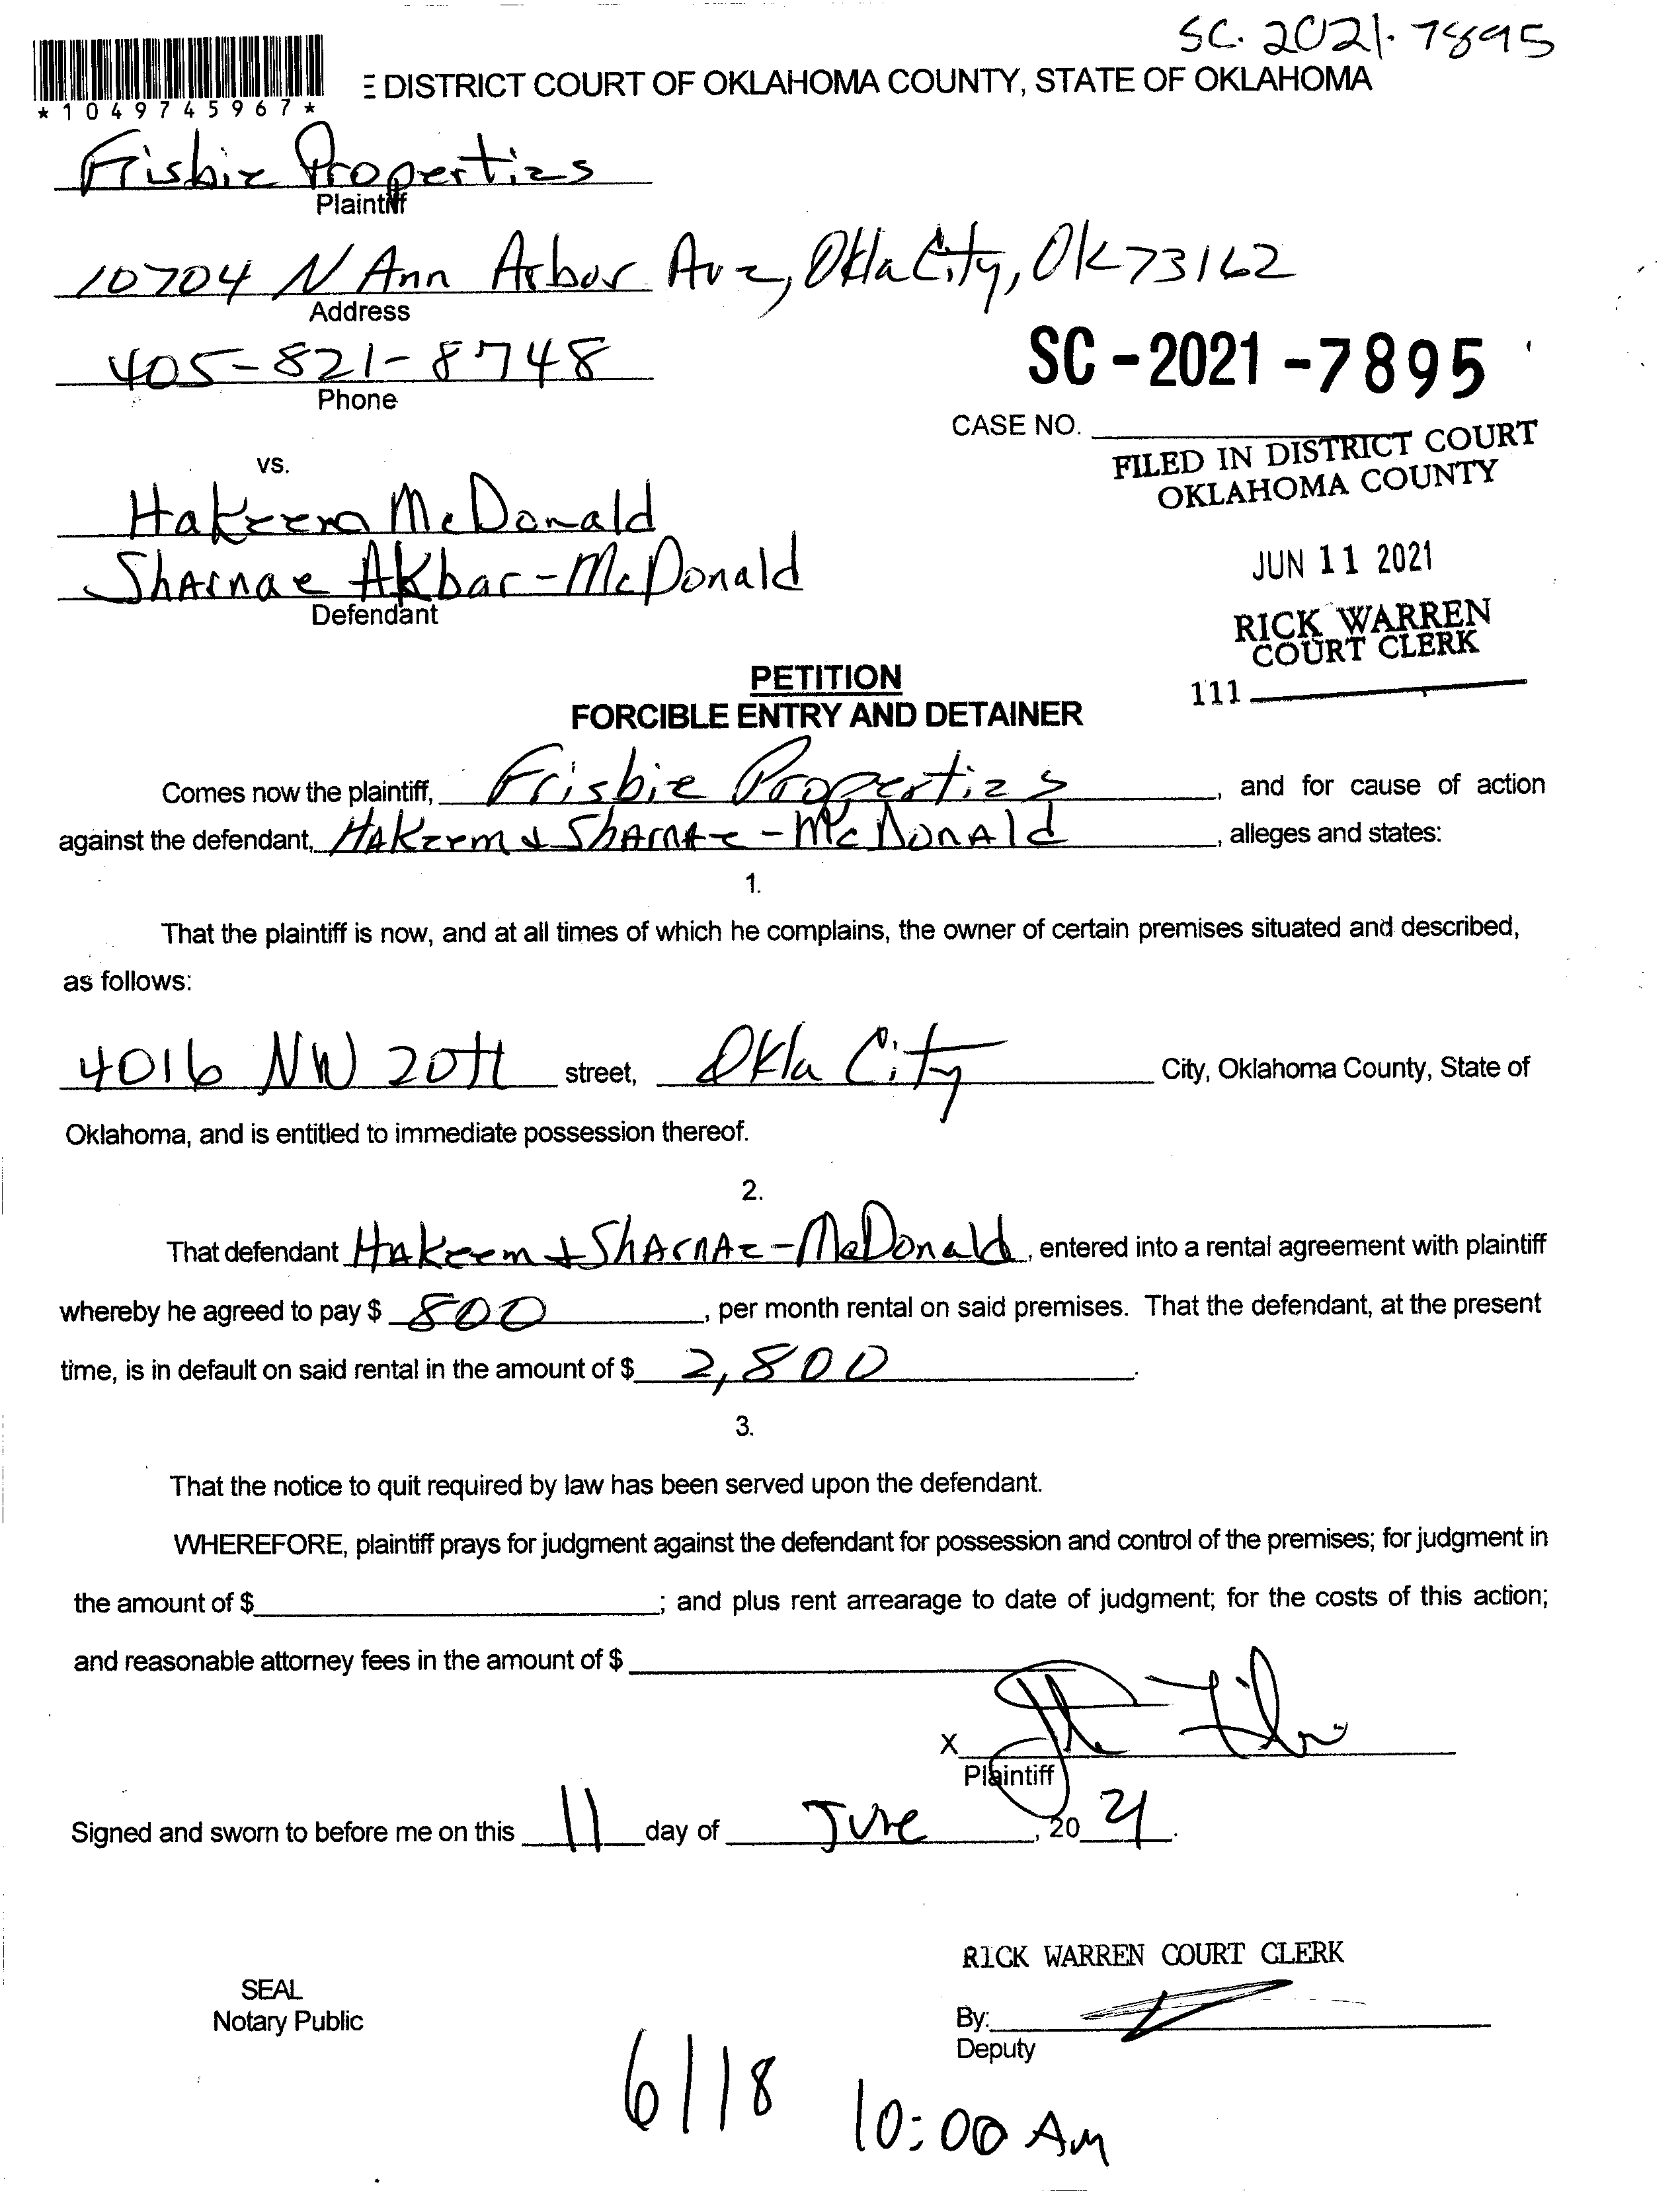 SC-2021-7895
*1049745967*
E DISTRICT COURT OF OKLAHOMA COUNTY, STATE OF OKLAHOMA
Frisbie Properties
Plaintiff
10704 N Ann Arbor Ave, Okla City, OK 73162
Address
405-821-8748
Phone
SC-2021-7895
CASE NO.
FILED IN DISTRICT COURT
OKLAHOMA COUNTY
vs.
Hakeem McDonald
Sharnae Akbar-McDonald
Defendant
JUN 11 2021
RICK WARREN
COURT CLERK
111
PETITION
FORCIBLE ENTRY AND DETAINER
Comes now the plaintiff, Frisbie Properties, and for cause of action
against the defendant, Hakeem & Sharnae-McDonald, alleges and states:
1.
That the plaintiff is now, and at all times of which he complains, the owner of certain premises situated and described,
as follows:
4016 NW 20th street, Okla City City, Oklahoma County, State of
Oklahoma, and is entitled to immediate possession thereof.
2.
That defendant Hakeem & Sharnae-McDonald, entered into a rental agreement with plaintiff
whereby he agreed to pay $ 800, per month rental on said premises. That the defendant, at the present
time, is in default on said rental in the amount of $ 2,800.
3.
That the notice to quit required by law has been served upon the defendant.
WHEREFORE, plaintiff prays for judgment against the defendant for possession and control of the premises; for judgment in
the amount of $; and plus rent arrearage to date of judgment; for the costs of this action;
and reasonable attorney fees in the amount of $
X
Plaintiff
Signed and sworn to before me on this 11 day of June, 20 21.
RICK WARREN COURT CLERK
SEAL
Notary Public
By:
Deputy
6/18 10:00 AM